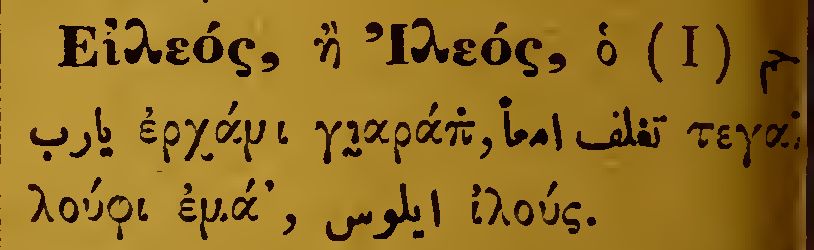 Εἰλεός, ἢ Ἰλεός, ὁ (Ι)
يارب ἐρχάμι γιαράπ̇, تغلف امعأ τεγα
λούφι ἐμά’, ايلوس ἰλούς.